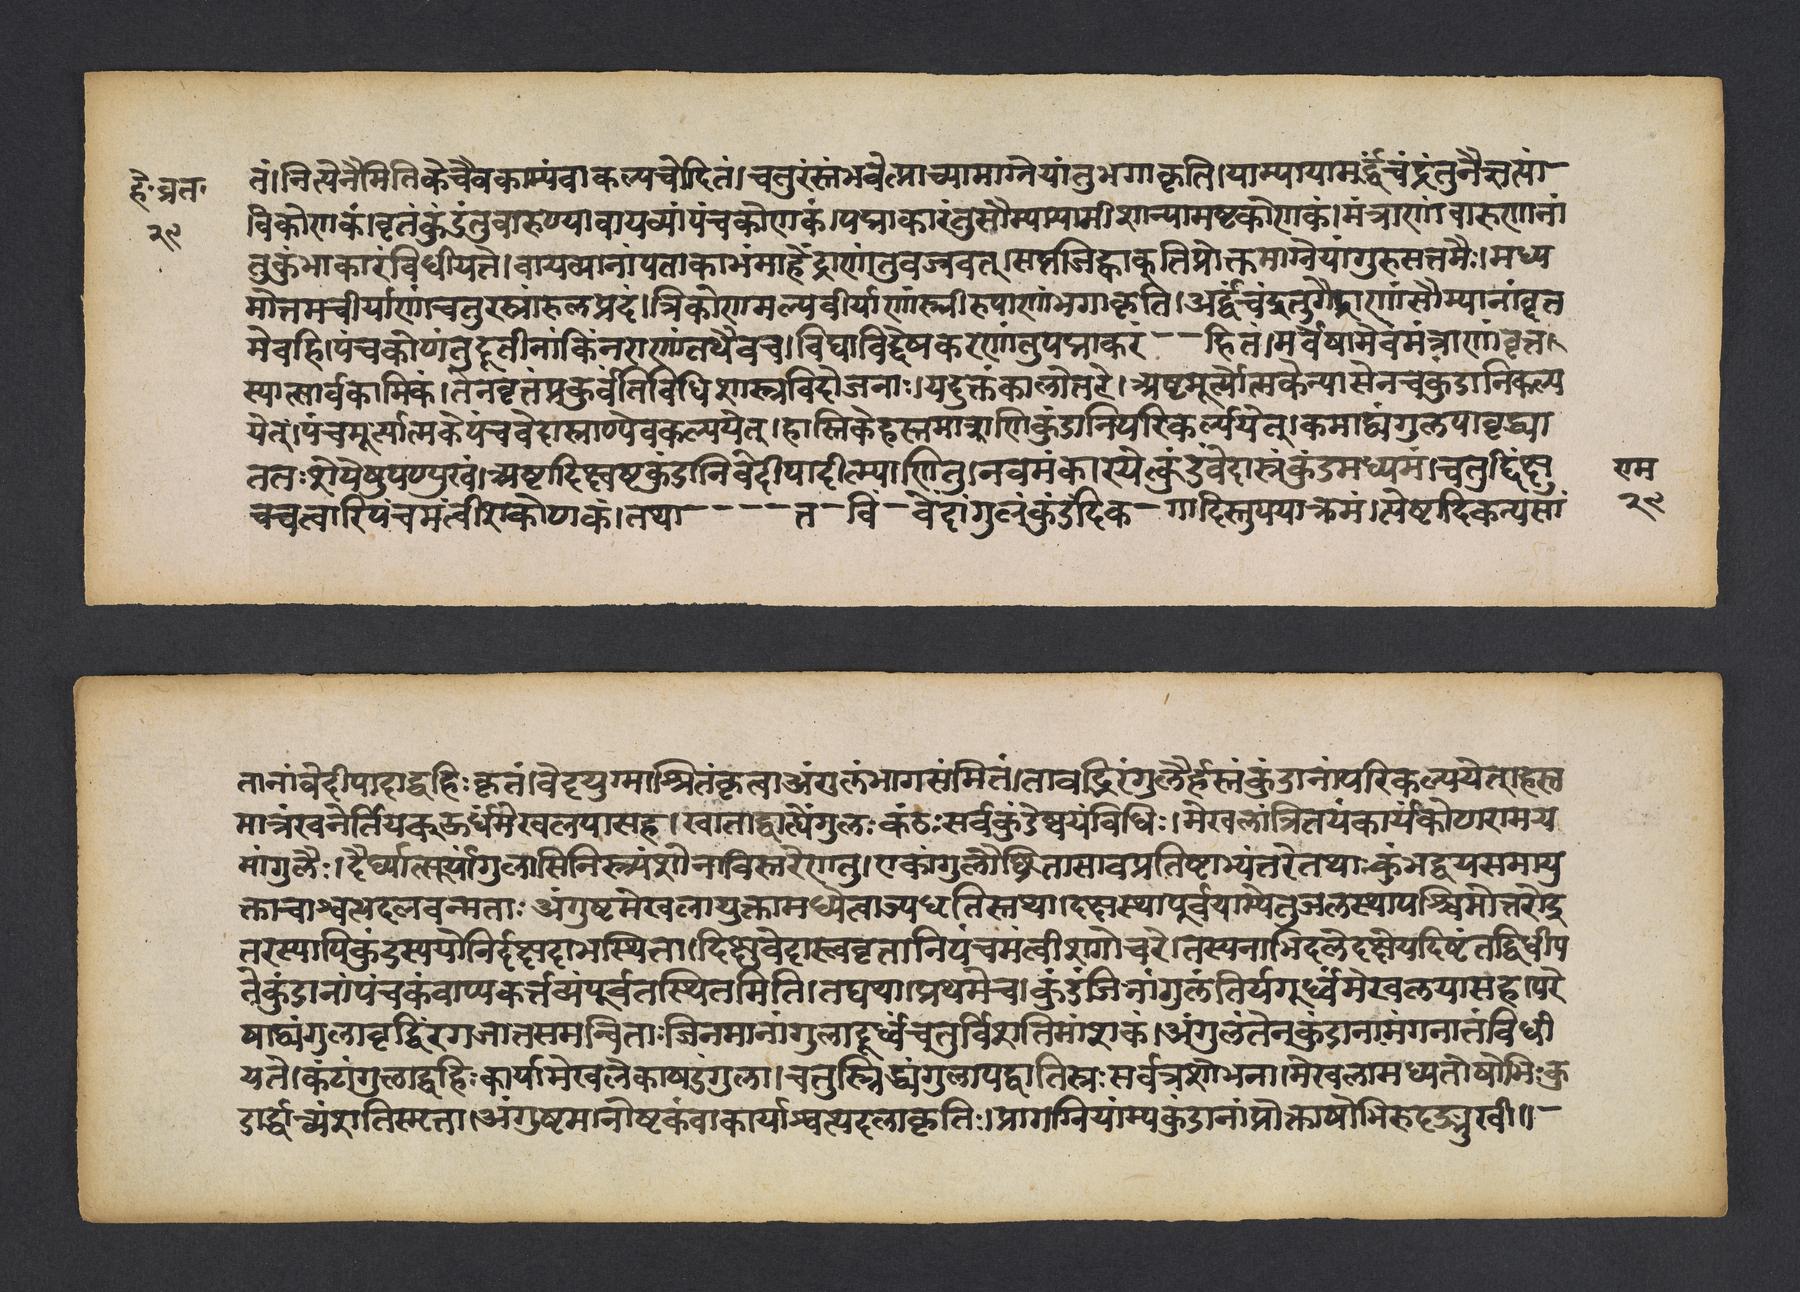 हे॰व्रत॰
२९
तं।नित्येनैमितिकेचैवकाम्यंवाकल्पचोदितं।चतुरंस्रंभवेत्प्राच्यामाग्नेयांतुभगाकृति।याम्यायामर्द्धचंद्रंतुनैऋत्यां-
विकोणकं।वृतंकुंडंतुवारुण्यावायव्यांपंचकोणकं।पद्माकारंतुसौम्यायामीशान्यामष्टकोणकं।मंत्राणांवारुणानां
तुकुंभाकारंविधीयतेे।वायव्यानांपताकाभंमाहेंद्राणांतुवज्रवत्।सप्तजिह्वाकृतिप्रोक्तमाग्नेयांगुरुसत्तमैः।मध्य
मोत्तमवीर्याणांचतुरस्त्रांरुलप्रदं।त्रिकोणमल्पवीर्याणांस्त्रीरुपाणांभगाकृति।अर्द्धचंद्रुतुरौद्राणांसौम्यानांवृत
मेवहि।पंचकोणंतुदूतीनांकिंनराणांतथैवच।विघाविद्वेषकरणेंतुपद्माकरं--हितं।मर्वेषामेवमंत्राणांवृत्त
स्यात्सार्वकामिकं।तेनवृत्तंप्रकुर्वंतिविधिशास्त्रविदोजनाः।यदुक्तंकालोतरे।अष्टमूर्त्यात्मकेन्यासेनचकुंडानिकल्प
येत्।पंचमूर्त्यात्मकेपंचवेदास्त्राण्येवकल्पयेत्।हास्तिकेहस्तमात्राणिकुंडानिपरिकल्पयेत्।कमाद्व्यंगुलपावृद्ध्या
ततःशेषेषुपण्मुखं।अष्टादिक्ष्वष्टकुंडानिवेदीपादीत्म्पाणितु।नवमंकारयेत्कुंडंवेदास्त्रंकुंडमध्यमं।चतुर्दिक्षु
राम
२९
चचत्वारिपंचमंत्वीशकोणकं।तथा----त-वि-वेदांगुलंकुंडंदिक-गादिस्तुपयाक्रमं।सेष्टादिकन्यसां
तानांवेदीपादाद्वहिःकृतं।वेदृयुग्माश्रितंकृत्वाअंगुलंभागसंमितं।तावद्भिरंगुलैर्हस्तंकुंडानांपरिकल्पयेत्।हस्त
मात्रंखनेर्तियकऊर्ध्वमेखलपासह।खाताद्वात्येंगुलःकंठःसर्वकुंडेष्वयंविधिः।मेखलांत्रितयंकार्यंकोणरामय
मांगुलैः।दैर्घ्यात्सूर्यांगुलासिनिस्त्र्यंशोनाविस्तरेणतु।एकांगुलोच्छ्रितासावप्रतिष्टाभ्यंतरेतथा।कुंभद्वयसमायु
क्ताचाश्वत्थदलवन्मताःअंगुष्टमेखलायुक्तामध्येत्वाज्यधतिस्तथा।दक्षस्थापूर्वयाम्येतुजलस्थापश्चिमोत्तरोदु
तरस्यापिकुंडस्पयोनिर्दृक्षदाभस्थिता।दिक्षुवेदास्त्रवृतानिपंचमंत्वीशगोचरे।तस्यनाभिदलेदक्षेयदिष्टंतद्विधीप
तेकुंडानांपंचकंवाप्पकर्त्तव्यंपूर्वतस्थितमिति।तघथा।प्रथमेच।कुंडंजिनांगुलंतिर्यगूर्ध्वंमेखलयासह।परे
षाद्व्यंगुलावृद्धिंरगजातसमन्विताःजिनमानांगुलादूर्ध्वंचतुर्विंशतिमांशकं।अंगुलंतेनकुंडानामंगनातंविधी
यते।कंटांगुलाद्वहिःकार्यामेखलैकाषडंगुला।चतुस्त्रिद्व्यंगुलापद्वातिस्त्रःसर्वत्रशोभना।मेखलामध्यतोषोभिःकु
डार्द्धात्र्यंशातिस्तृता।अंगुष्टमानोष्टकंवाकार्याश्वत्थदलाकृतिः।प्रागग्नियांम्यकुंडानांप्रोक्तायोभिरुदङ्मुखी॥-